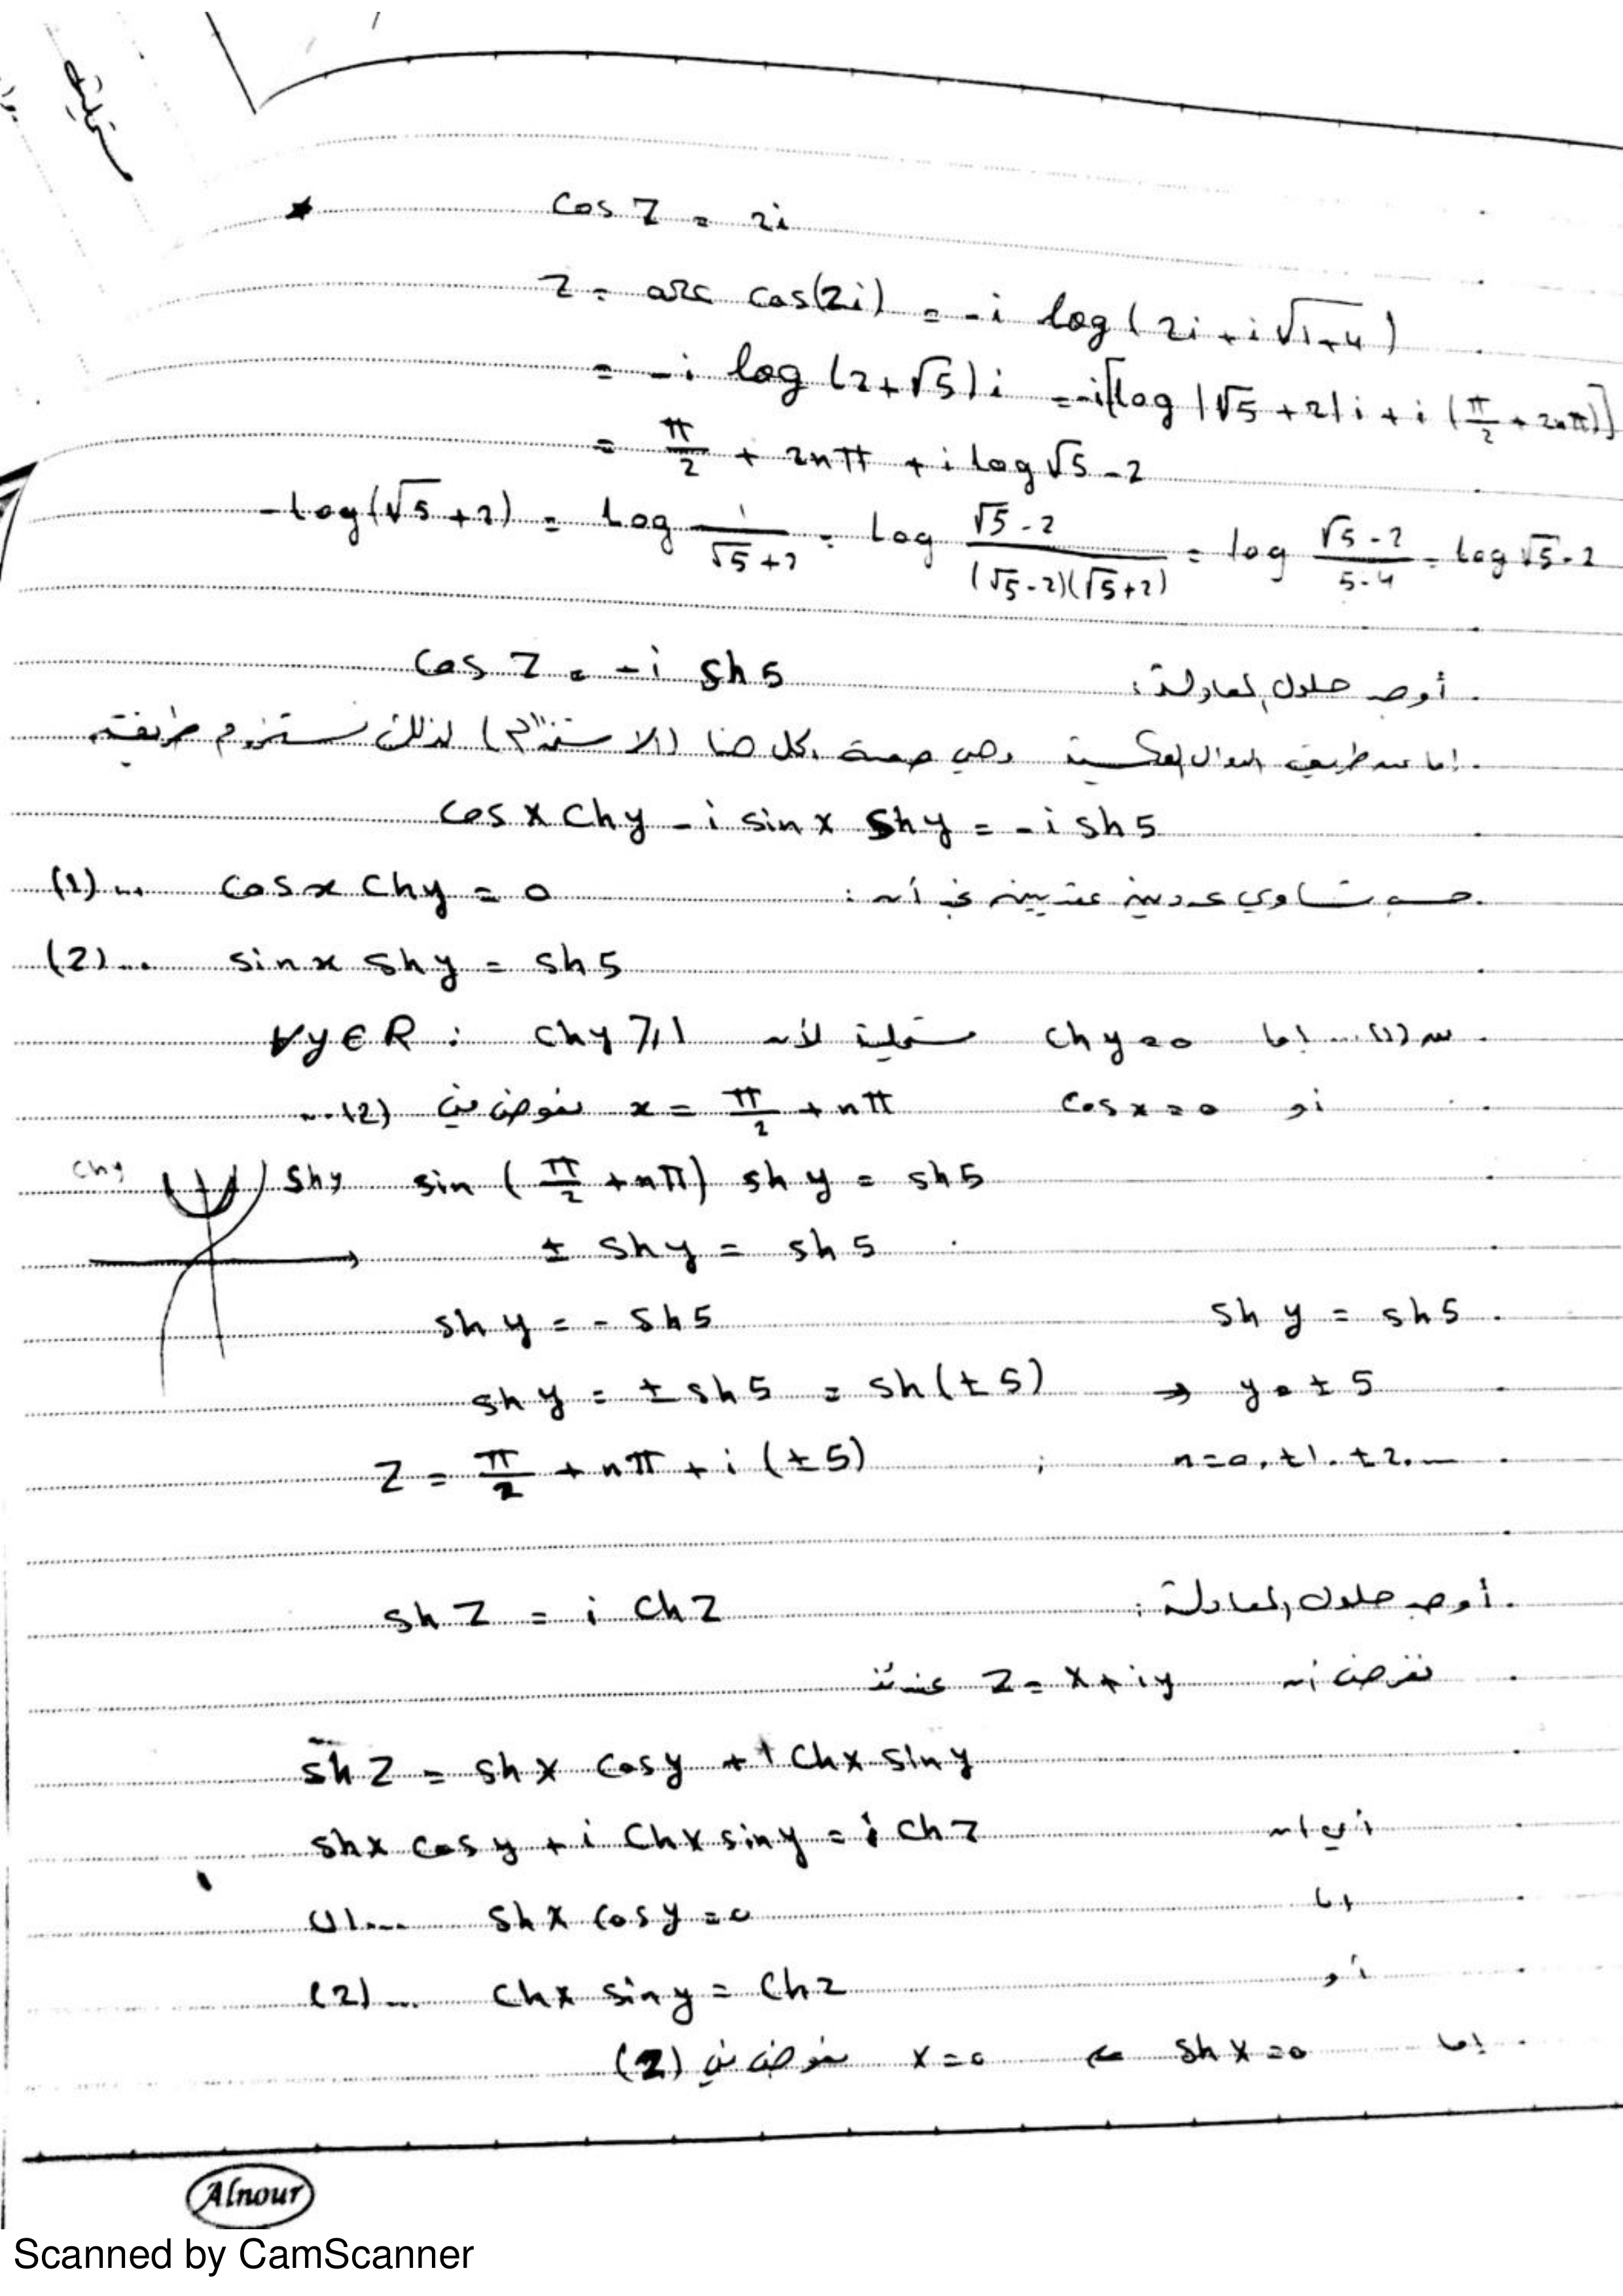 مستحيلة
cos z = 2i
z = arc cos(2i) = -i log(2i + i√1+4)
= -i log(2+√5)i = -i[log|√5+2|i + i(π/2 + 2nπ)]
= π/2 + 2nπ + i log√5-2
-log(√5+2) = log 1/(√5+2) = log (√5-2)/((√5-2)(√5+2)) = log (√5-2)/(5-4) = log √5-2
أوجد حلول المعادلة: cos z = -i sh5
إما عن طريق الدوال العكسية وهي صعبة لذلك طريقة
cos x chy - i sin x shy = -i sh5
حسب تساوي عددين عقديين نجد أن:
(1)... cos x chy = 0
(2)... sin x shy = sh5
من (1) إما chy = 0 مستحيلة لأن ∀y∈R : chy ≥ 1
أو cos x = 0 x = π/2 + nπ نعوض في (2)
chy shy sin(π/2 + nπ) sh y = sh5
± shy = sh5
sh y = sh5 sh y = -sh5
sh y = ± sh5 = sh(±5) → y = ±5
z = π/2 + nπ + i(±5) ; n = 0, ±1, ±2, ...
أوجد حلول المعادلة: sh z = i ch2
نفرض أن z = x + iy عندئذ
sh z = shx cos y + i chx sin y
أي أن shx cos y + i chx sin y = i ch2
إما (1)... shx cos y = 0
أو (2)... chx sin y = ch2
إما shx = 0 ⇐ x = 0 نعوض في (2)
Alnour
Scanned by CamScanner